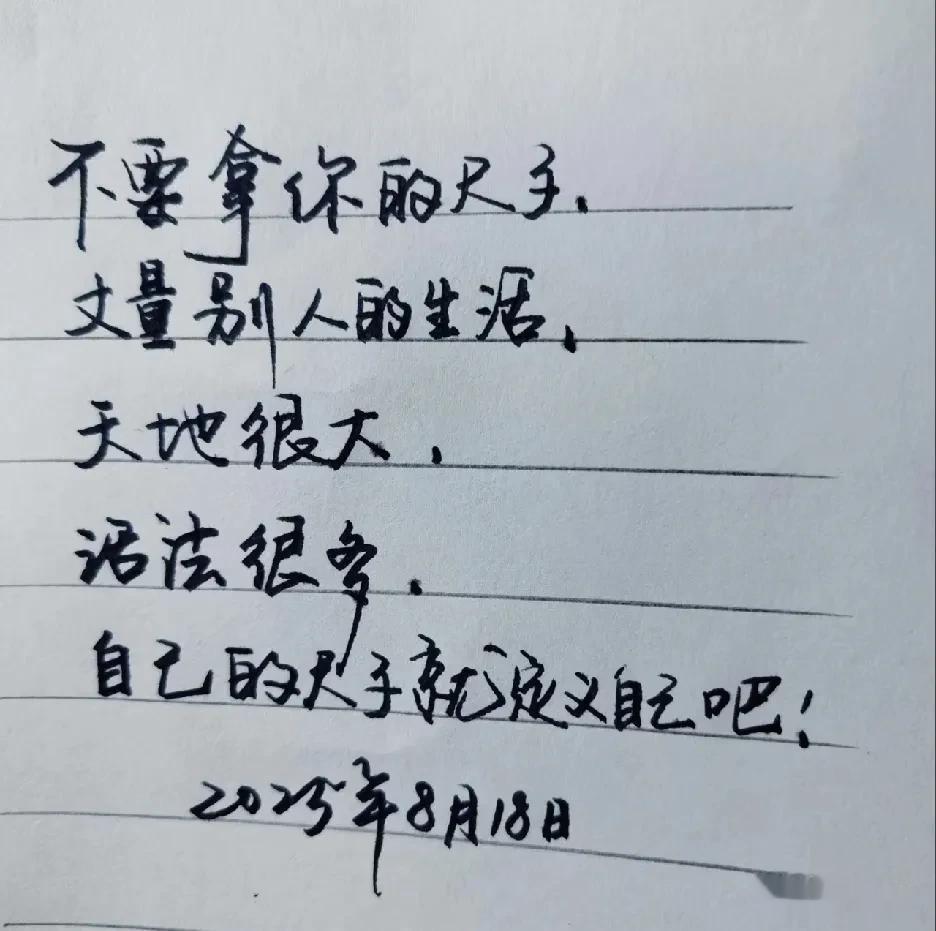 不要拿你的尺子.
丈量别人的生活.
天地很大.
活法很多.
自己的尺子就定义自己吧!
2025年8月18日